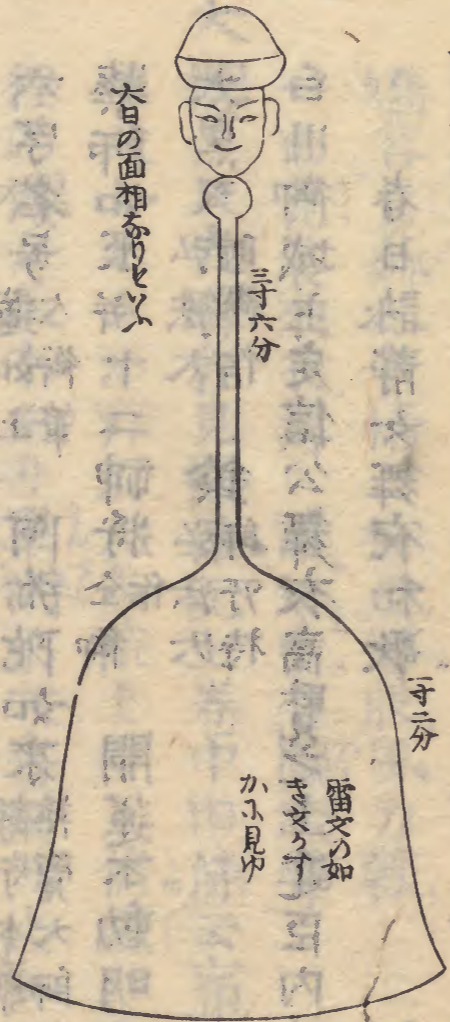 大日の面相なりといふ
三寸六分
一寸二分
雷文の如
き文かす
かに見ゆ